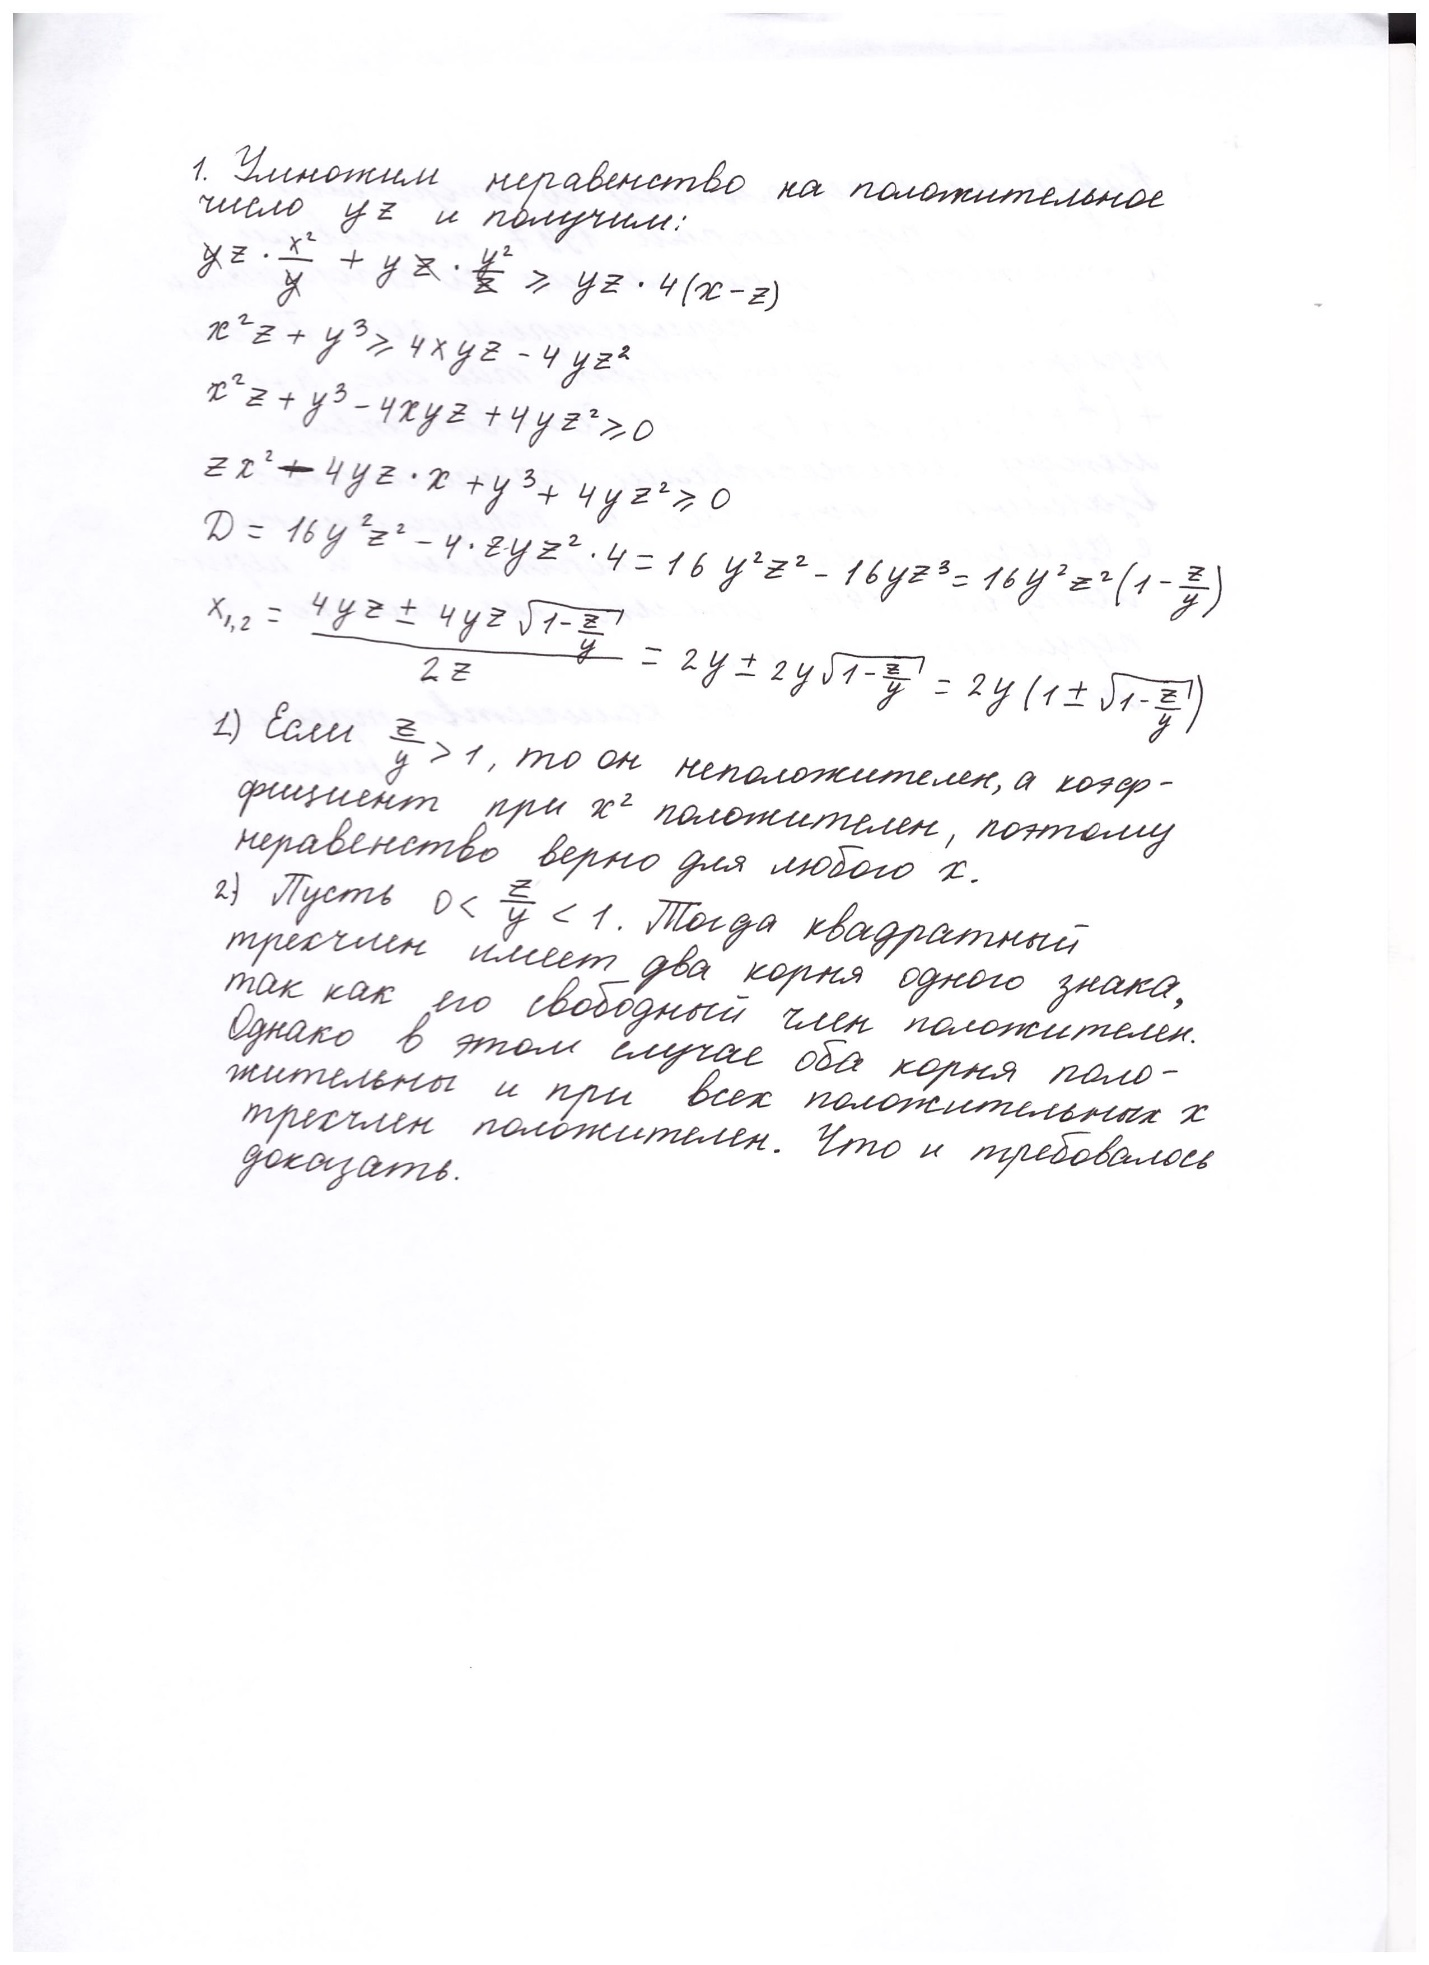 1. Умножим неравенство на положительное
число yz и получим:
yz · x²/y + yz · y²/z ⩾ yz · 4(x-z)
x²z + y³ ⩾ 4xyz - 4yz²
x²z + y³ - 4xyz + 4yz² ⩾ 0
zx² - 4yz · x + y³ + 4yz² ⩾ 0
D = 16y²z² - 4 · zyz² · 4 = 16y²z² - 16yz³ = 16y²z²(1 - z/y)
x₁,₂ = (4yz ± 4yz√(1 - z/y))/2z = 2y ± 2y√(1 - z/y) = 2y(1 ± √(1 - z/y))
1) Если z/y > 1, то он неположителен, а коэф-
фициент при x² положителен, поэтому
неравенство верно для любого x.
2) Пусть 0 < z/y < 1. Тогда квадратный
трехчлен имеет два корня одного знака,
так как его свободный член положителен.
Однако в этом случае оба корня поло-
жительны и при всех положительных x
трехчлен положителен. Что и требовалось
доказать.